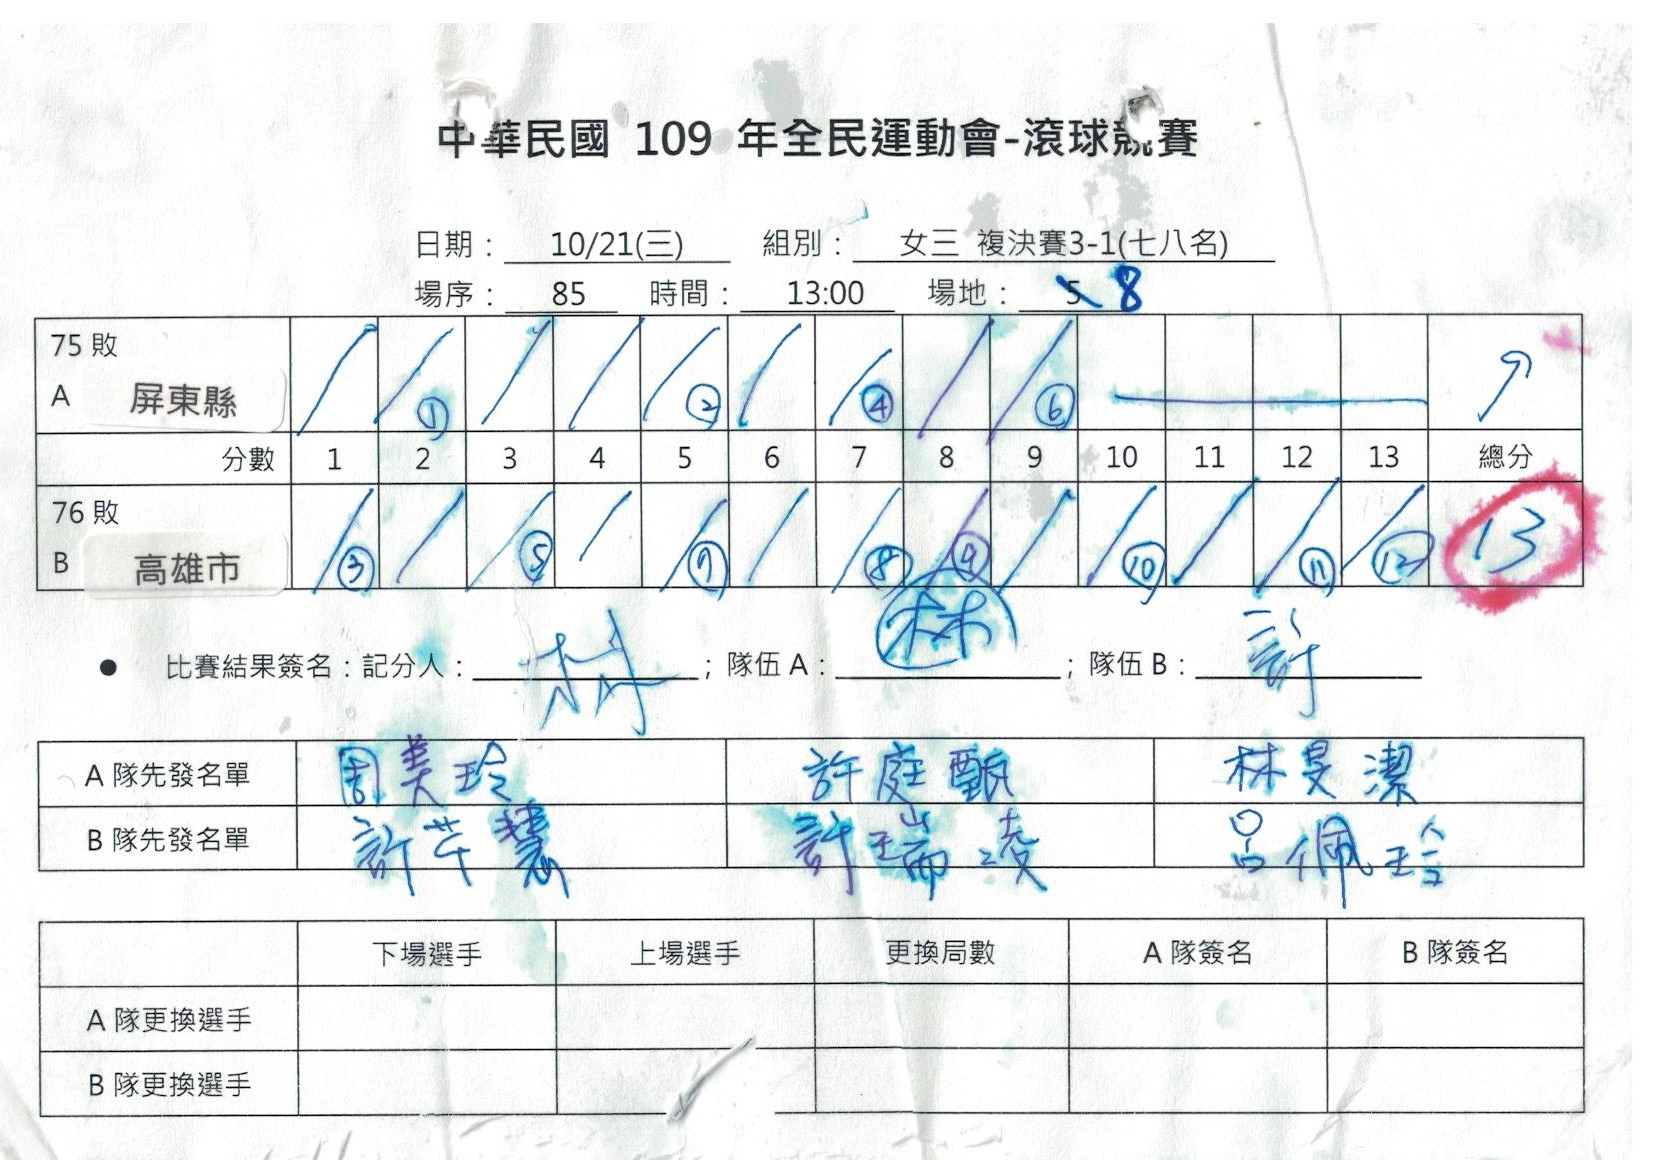 中華民國 109 年全民運動會-滾球競賽
日期： 10/21(三) 組別： 女三 複決賽3-1(七八名)
場序： 85 時間： 13:00 場地： 5 8
75 敗
A 屏東縣 ① ② ④ ⑥ 9
分數 1 2 3 4 5 6 7 8 9 10 11 12 13 總分
76 敗
B 高雄市 ③ ⑤ ⑦ ⑧ ⑨ ⑩ ⑪ ⑫ 13
● 比賽結果簽名：記分人： ；隊伍 A： 林 ；隊伍 B： 許
A 隊先發名單 周美玲 許庭甄 林旻潔
B 隊先發名單 許芊慧 許瑞凌 呂佩玲
下場選手 上場選手 更換局數 A 隊簽名 B 隊簽名
A 隊更換選手
B 隊更換選手